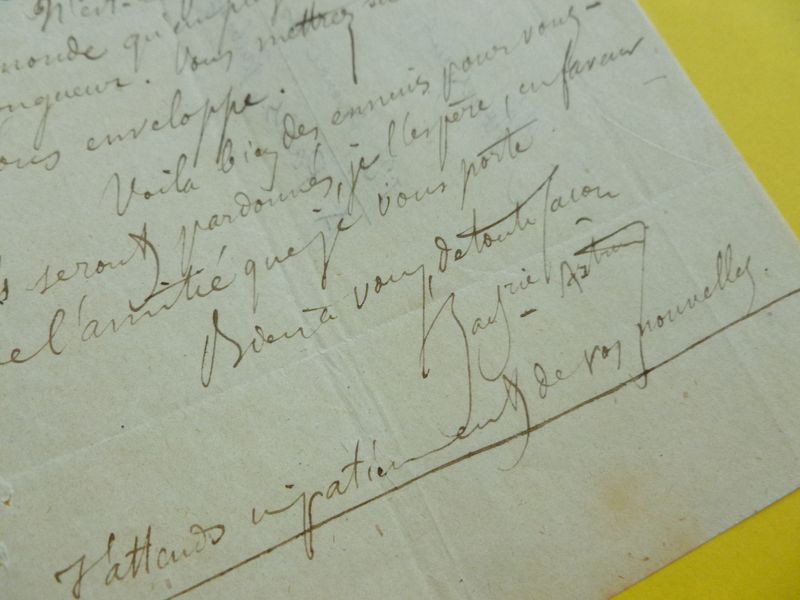 monde qu'
longueur. Vous mettrez
sous enveloppe.
Voilà bien des ennuis pour vous –
ils seront pardonnés, je l'espère, en faveur
de l'amitié que je vous porte.
Bien à vous, de toute façon
Zacharie Astruc
J'attends impatiemment de vos nouvelles.